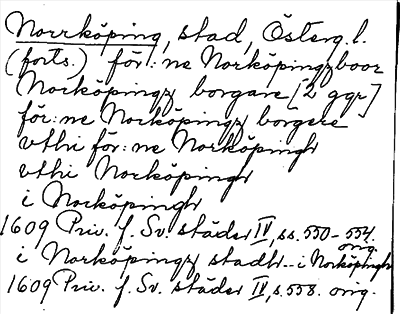 Norrköping, stad, Österg.l.
(forts.) för:ne Norköpingzboor
Norköpingz borgare [2 ggr]
för:ne Norköpingz borgere
vthi för:ne Norköpingh
vthi Norköpingh
i Norköpingh
1609 Priv. f. Sv. städer IV, ss. 550-554. orig.
i Norköpingz stadh -- i Norköpingh
1609 Priv. f. Sv. städer IV, s. 558. orig.